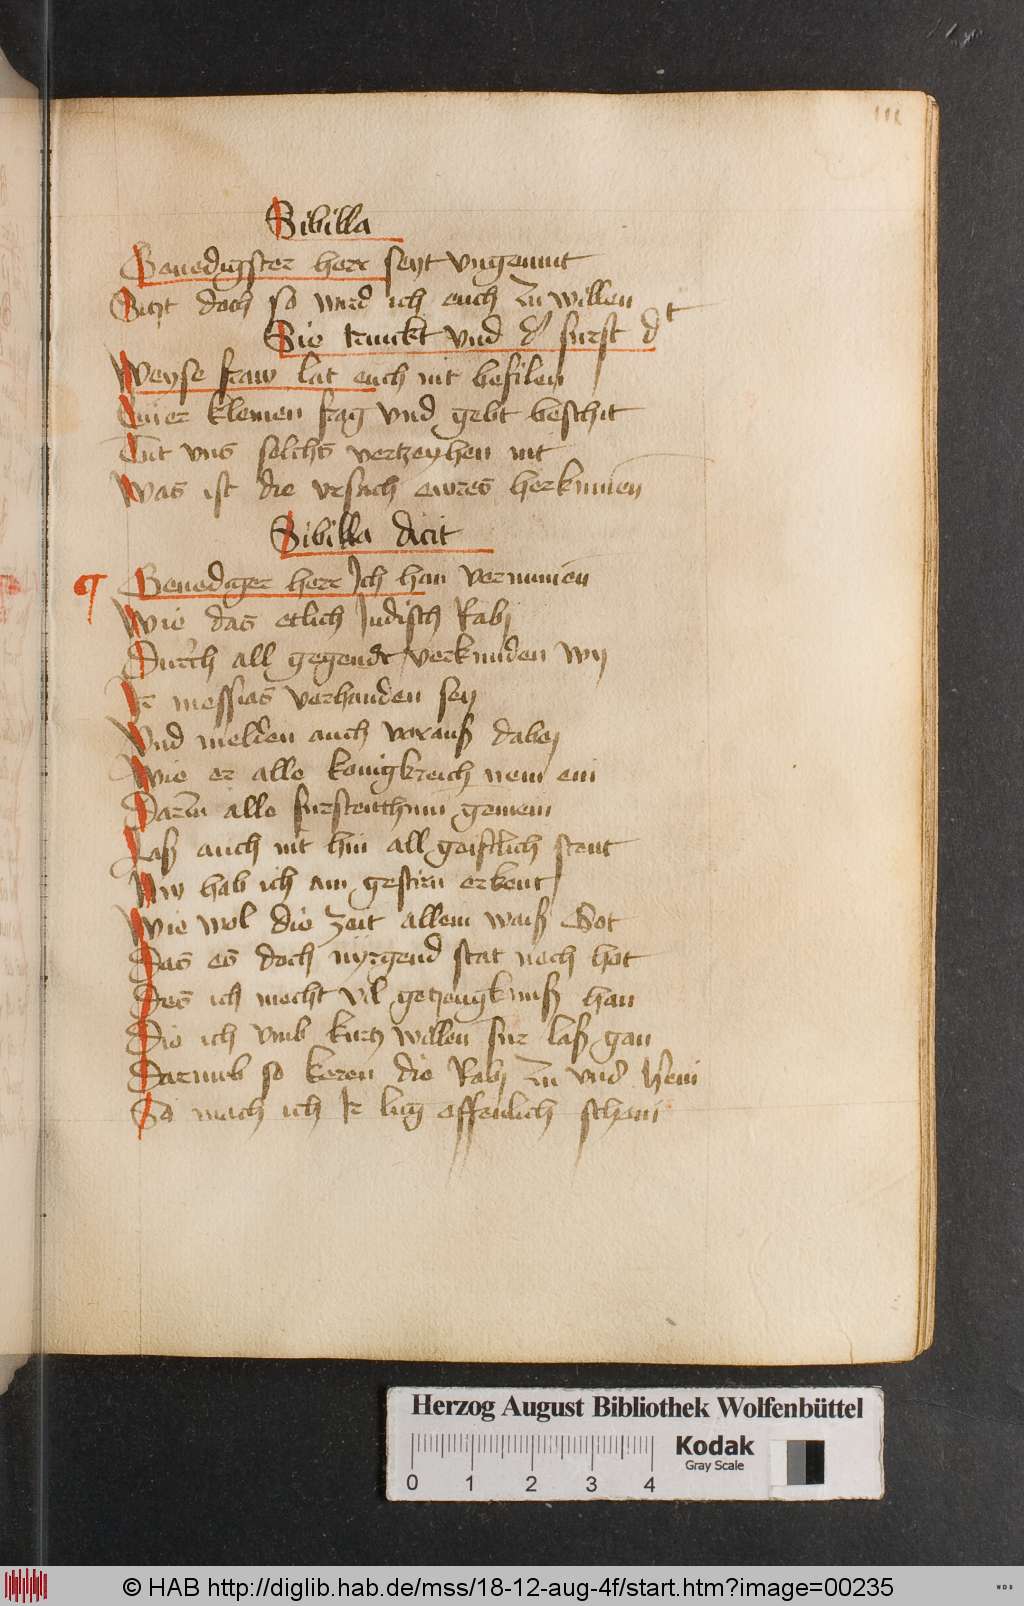 111
Sibilla
Genedigster herr seyt vngemut
Sitzt doch so wird ich euch zu willen
Sie trinckt vnd d' furst dt
Weyse fraw lat euch nit befilen
Einer kleinen frag vnd gebt beschit
Tut vns solchs vertzeyhen nit
Was ist die vrsach ewres herkumen
Sibilla dicit
Genediger herr Ich han vernumen
Wie das etlich Judisch Rabj
Durch all gegendt verkunden wy
Ir messias verhanden sey
Vnd melden auch vorauß dabej
Wie er alle konigkreich nem ein
Darzu alle furstenthum gemein
Laß auch nit hin all geistlich stent
Nw hab ich am gestirn erkent
Wie wol die Zeit allein waiß Got
Das es doch nyrgend stat noch hot
Des ich mocht vil getzeugknuß han
Die ich vmb kurtz willen fur laß gan
Darumb so keren die Rabj zu vnd
So mach ich Ir lug offenlich schein
Herzog August Bibliothek Wolfenbüttel
Kodak
Gray Scale
0 1 2 3 4
© HAB http://diglib.hab.de/mss/18-12-aug-4f/start.htm?image=00235